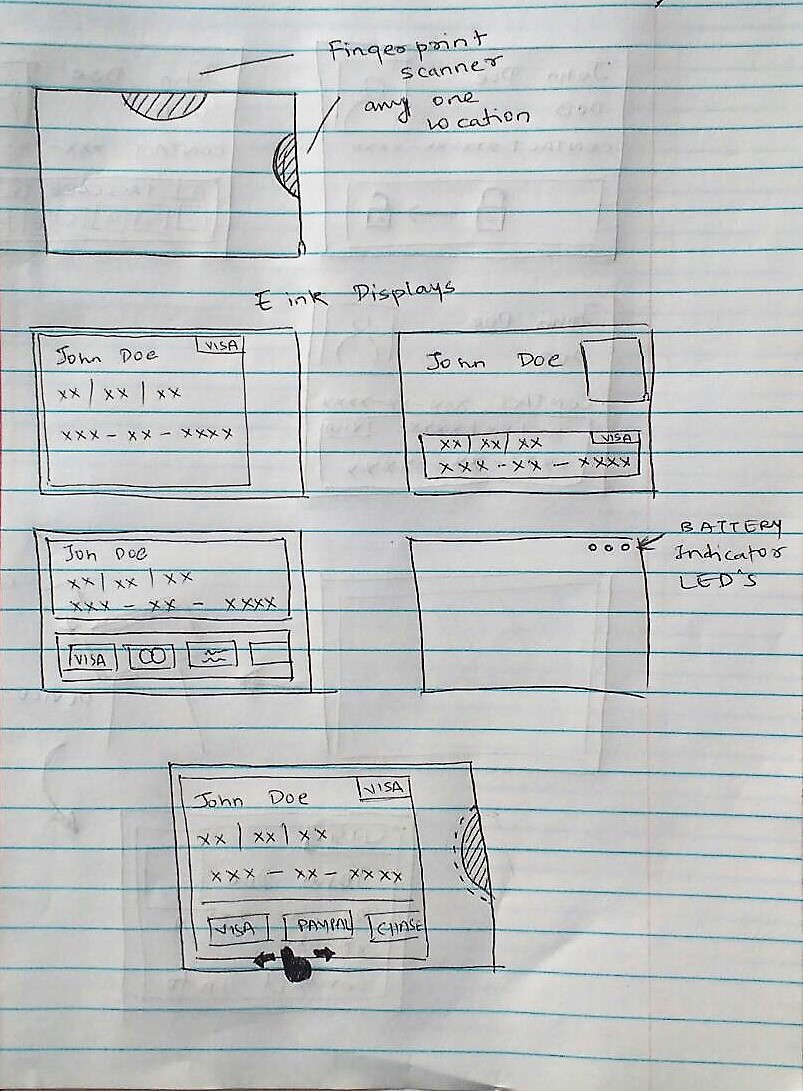 Fingerprint
scanner
any one
location
E ink Displays
John Doe VISA
xx | xx | xx
xxx - xx - xxxx
John Doe
xx | xx | xx VISA
xxx - xx - xxxx
Jon Doe
xx | xx | xx
xxx - xx - xxxx
VISA
BATTERY
Indicator
LED'S
John Doe VISA
xx | xx | xx
xxx - xx - xxxx
VISA PAYPAL CHASE